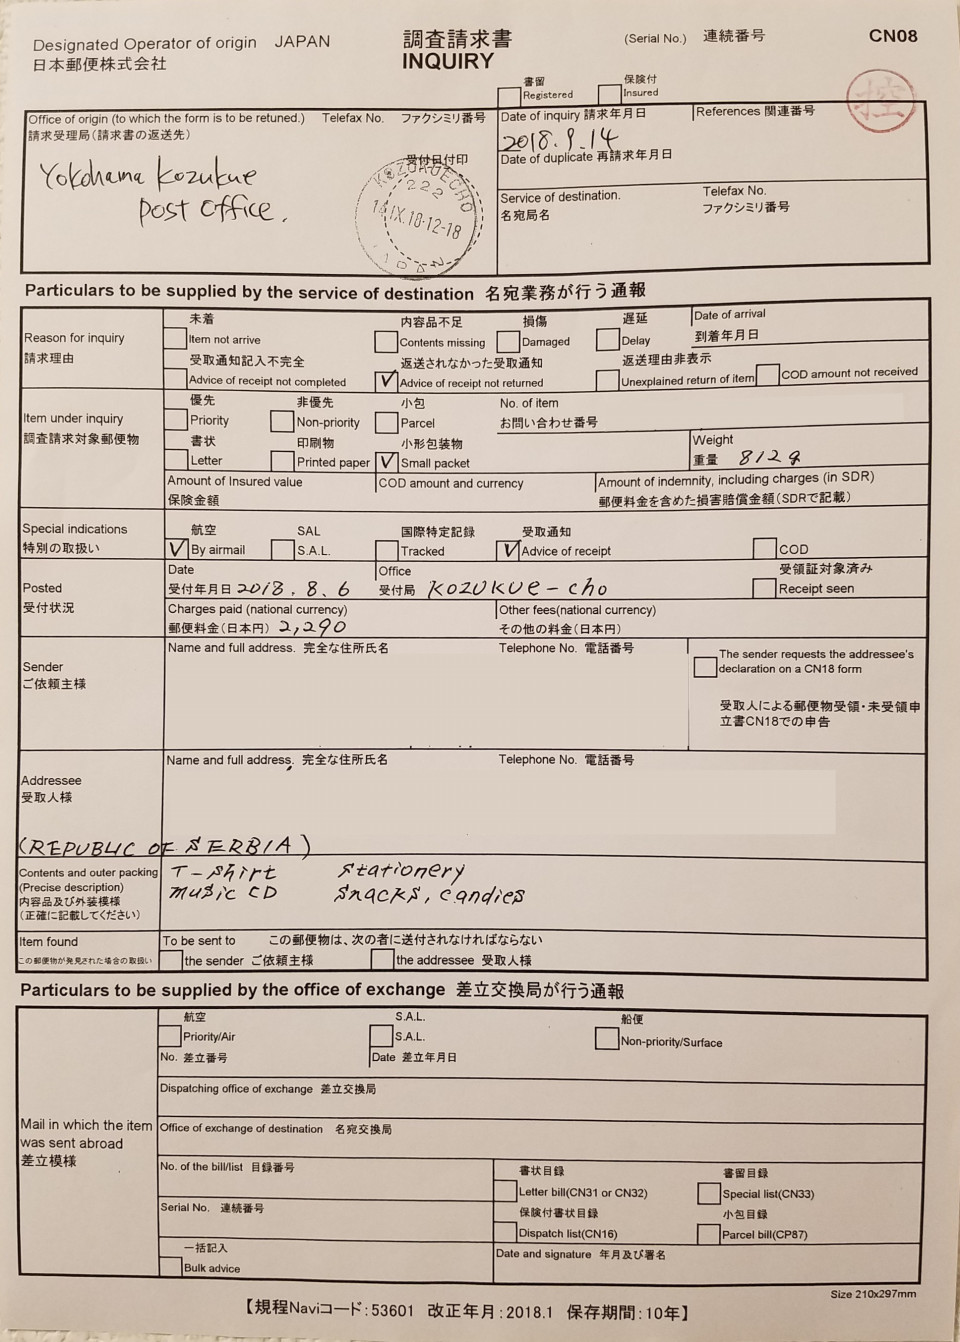 Designated Operator of origin JAPAN
日本郵便株式会社
調査請求書
INQUIRY
(Serial No.) 連続番号
CN08
書留
Registered
保険付
Insured
控
Office of origin (to which the form is to be retuned.) Telefax No. ファクシミリ番号
請求受理局(請求書の返送先)
受付日付印
Yokohama Kozukue
Post Office.
KOZUKUECHO
222
14.IX.18.12-18
JAPAN
Date of inquiry 請求年月日
2018.9.14
Date of duplicate 再請求年月日
References 関連番号
Service of destination.
名宛局名
Telefax No.
ファクシミリ番号
Particulars to be supplied by the service of destination 名宛業務が行う通報
Reason for inquiry
請求理由
未着
Item not arrive
内容品不足
Contents missing
損傷
Damaged
遅延
Delay
Date of arrival
到着年月日
受取通知記入不完全
Advice of receipt not completed
返送されなかった受取通知
Advice of receipt not returned
返送理由非表示
Unexplained return of item
COD amount not received
Item under inquiry
調査請求対象郵便物
優先
Priority
非優先
Non-priority
小包
Parcel
No. of item
お問い合わせ番号
書状
Letter
印刷物
Printed paper
小形包装物
Small packet
Weight
重量 812g
Amount of Insured value
保険金額
COD amount and currency
Amount of indemnity, including charges (in SDR)
郵便料金を含めた損害賠償金額(SDRで記載)
Special indications
特別の取扱い
航空
By airmail
SAL
S.A.L.
国際特定記録
Tracked
受取通知
Advice of receipt
COD
Posted
受付状況
Date
受付年月日 2018.8.6
Office
受付局 KOZUKUE-cho
受領証対象済み
Receipt seen
Charges paid (national currency)
郵便料金(日本円) 2,290
Other fees(national currency)
その他の料金(日本円)
Sender
ご依頼主様
Name and full address. 完全な住所氏名
Telephone No. 電話番号
The sender requests the addressee's
declaration on a CN18 form
受取人による郵便物受領・未受領申
立書CN18での申告
Addressee
受取人様
Name and full address. 完全な住所氏名
Telephone No. 電話番号
(REPUBLIC OF SERBIA)
Contents and outer packing
(Precise description)
内容品及び外装模様
(正確に記載してください)
T-shirt stationery
music CD snacks, candies
Item found
この郵便物が発見された場合の取扱い
To be sent to この郵便物は、次の者に送付されなければならない
the sender ご依頼主様
the addressee 受取人様
Particulars to be supplied by the office of exchange 差立交換局が行う通報
Mail in which the item
was sent abroad
差立模様
航空
Priority/Air
S.A.L.
S.A.L.
船便
Non-priority/Surface
No. 差立番号
Date 差立年月日
Dispatching office of exchange 差立交換局
Office of exchange of destination 名宛交換局
No. of the bill/list 目録番号
書状目録
Letter bill(CN31 or CN32)
書留目録
Special list(CN33)
Serial No. 連続番号
保険付書状目録
Dispatch list(CN16)
小包目録
Parcel bill(CP87)
一括記入
Bulk advice
Date and signature 年月及び署名
Size 210x297mm
【規程Naviコード:53601 改正年月:2018.1 保存期間:10年】